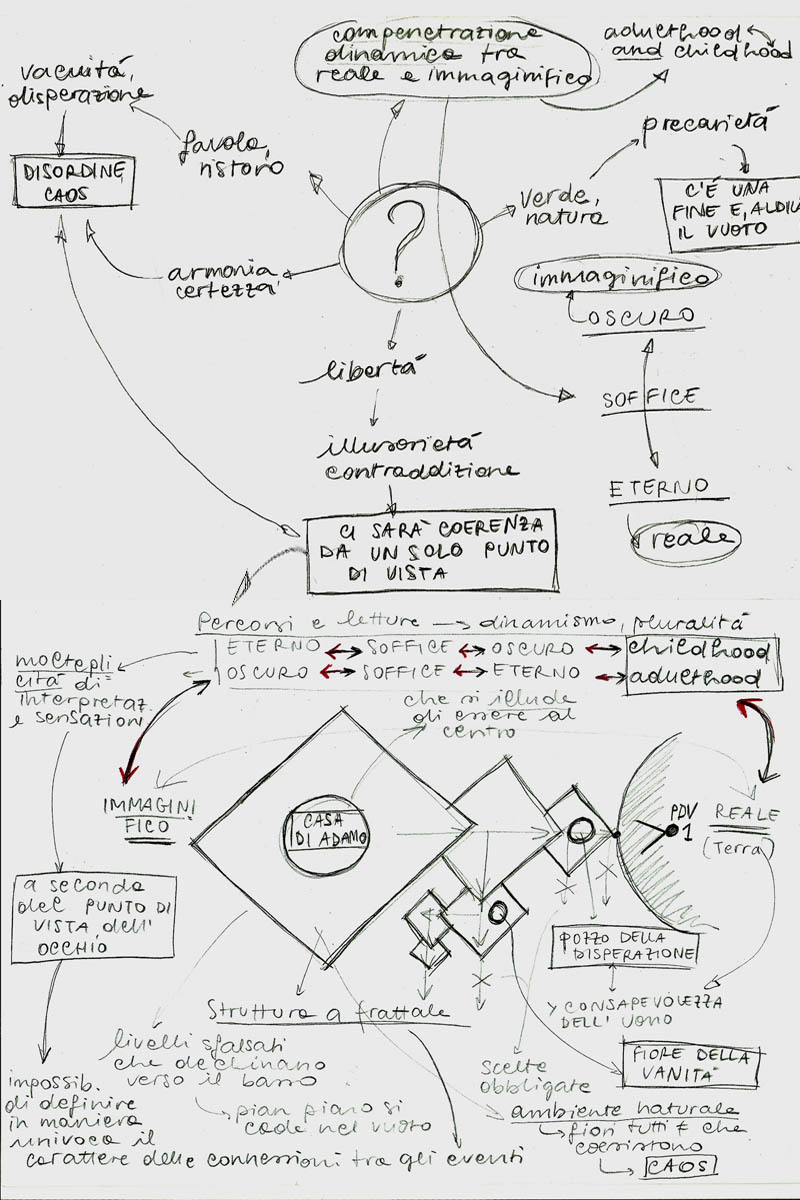 compenetrazione
dinamica tra
reale e immaginifico
adulthood
and childhood
vacuità,
disperazione
favola,
ristoro
DISORDINE
CAOS
precarietà
verde,
natura
C'È UNA
FINE E, ALDILÀ
IL VUOTO
?
armonia
certezza
immaginifico
OSCURO
libertà
SOFFICE
illusorietà
contraddizione
ETERNO
reale
CI SARÀ COERENZA
DA UN SOLO PUNTO
DI VISTA
Percorsi e letture → dinamismo, pluralità
ETERNO ↔ SOFFICE ↔ OSCURO ↔ childhood
OSCURO ↔ SOFFICE ↔ ETERNO ↔ adulthood
moltepli
cità di
interpretaz.
e sensazioni
che si illude
di essere al
centro
IMMAGINI
FICO
CASA
DI ADAMO
PDV
1
REALE
(Terra)
a seconda
del PUNTO DI
VISTA dell'
OCCHIO
POZZO DELLA
DISPERAZIONE
CONSAPEVOLEZZA
DELL'UOMO
Struttura a frattale
livelli sfalsati
che declinano
verso il basso
FIORE DELLA
VANITÀ
scelte
obbligate
pian piano si
cade nel vuoto
ambiente naturale
fiori tutti ≠ che
coesistono
CAOS
impossib.
di definire
in maniera
univoca il
carattere delle connessioni tra gli eventi